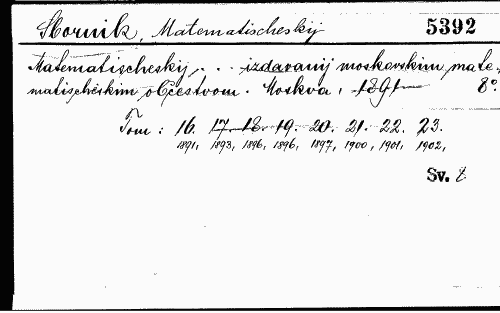 Sbornik, Matematischeskij 5392
Matematischeskij, . . . izdavanij moskovskim mate-
matischeskim obcestvom. Moskva, 1891— 8°.
Tom: 16. 17. 18. 19. 20. 21. 22. 23.
1891, 1893, 1896, 1896, 1897, 1900, 1901, 1902,
Sv.